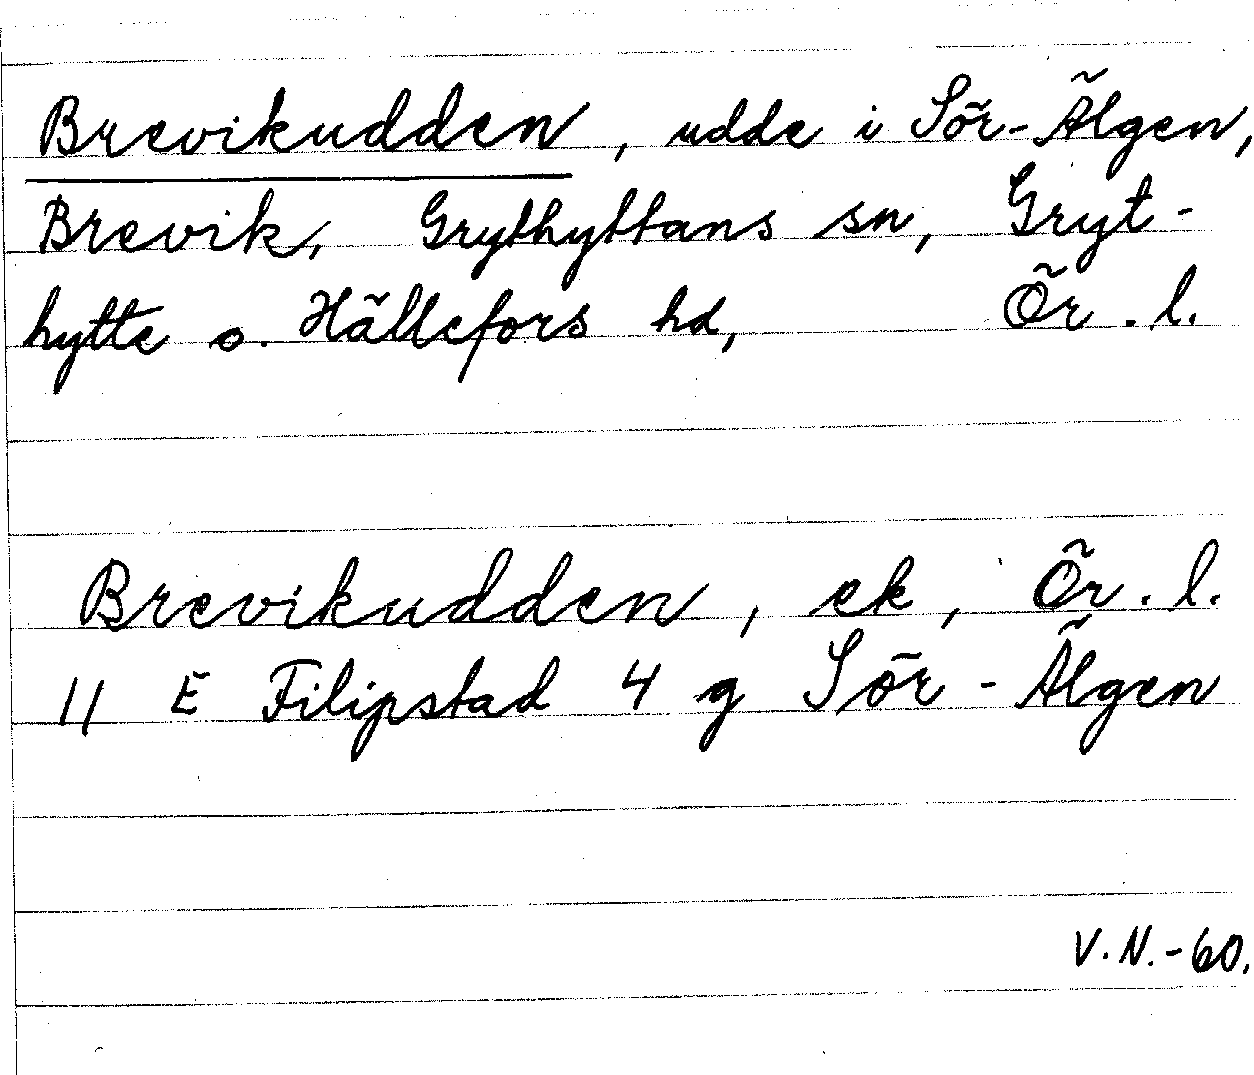 Brevikudden, udde i Sör-Älgen,
Brevik, Grythyttans sn, Gryt-
hytte o. Hällefors hd, Ör. l.
Brevikudden, ek, Ör. l.
11 E Filipstad 4 g Sör-Älgen
V.N.-60.